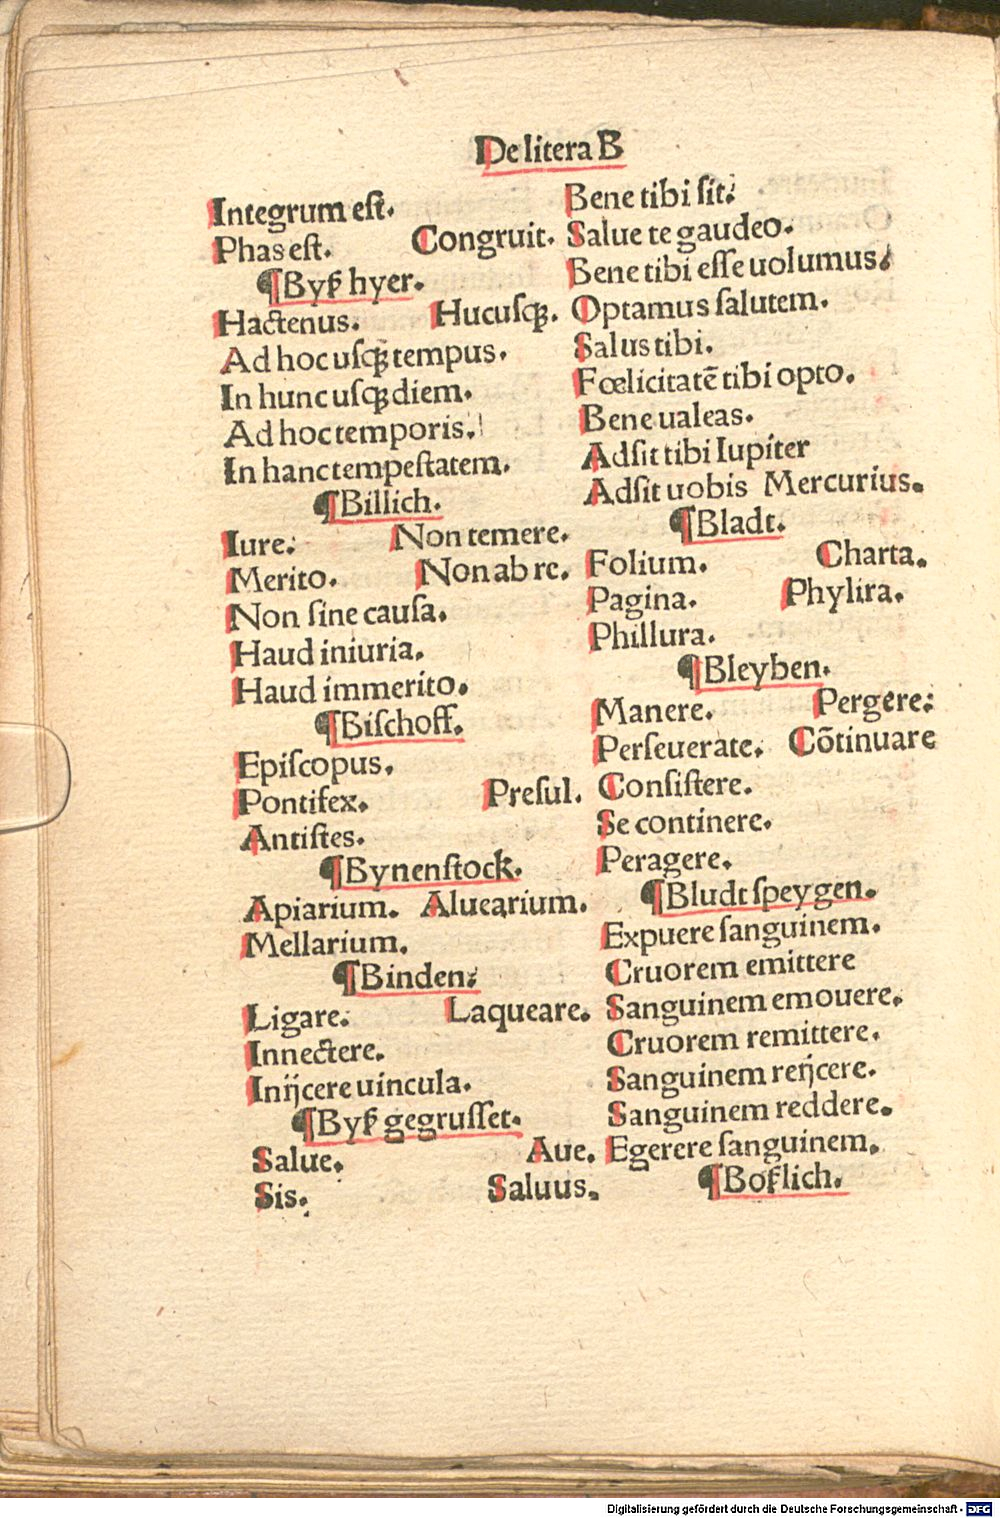 De litera B
Integrum eſt.
Phas eſt. Congruit.
¶Byß hyer.
Hactenus. Hucuſqꝫ.
Ad hoc uſqꝫ tempus.
In hunc uſqꝫ diem.
Ad hoc temporis.
In hanc tempeſtatem.
¶Billich.
Iure: Non temere.
Merito. Non ab re.
Non ſine cauſa.
Haud iniuria.
Haud immerito.
¶Biſchoff.
Epiſcopus.
Pontifex. Preſul.
Antiſtes.
¶Bynenſtock.
Apiarium. Aluearium.
Mellarium.
¶Binden:
Ligare. Laqueare.
Innectere.
Inijcere uincula.
¶Byß gegruſſet.
Salue. Aue.
Sis. Saluus.
Bene tibi ſit:
Salue te gaudeo.
Bene tibi eſſe uolumus:
Optamus ſalutem.
Salus tibi.
Fœlicitatē tibi opto.
Bene ualeas.
Adſit tibi Iupiter
Adſit uobis Mercurius.
¶Bladt.
Folium. Charta.
Pagina. Phylira.
Phillura.
¶Bleyben.
Manere. Pergere:
Perſeuerate. Cõtinuare
Conſiſtere.
Se continere.
Peragere.
¶Bludt ſpeygen.
Expuere ſanguinem.
Cruorem emittere
Sanguinem emouere.
Cruorem remittere.
Sanguinem reijcere.
Sanguinem reddere.
Egerere ſanguinem.
¶Boßlich.
Digitalisierung gefördert durch die Deutsche Forschungsgemeinschaft - DFG